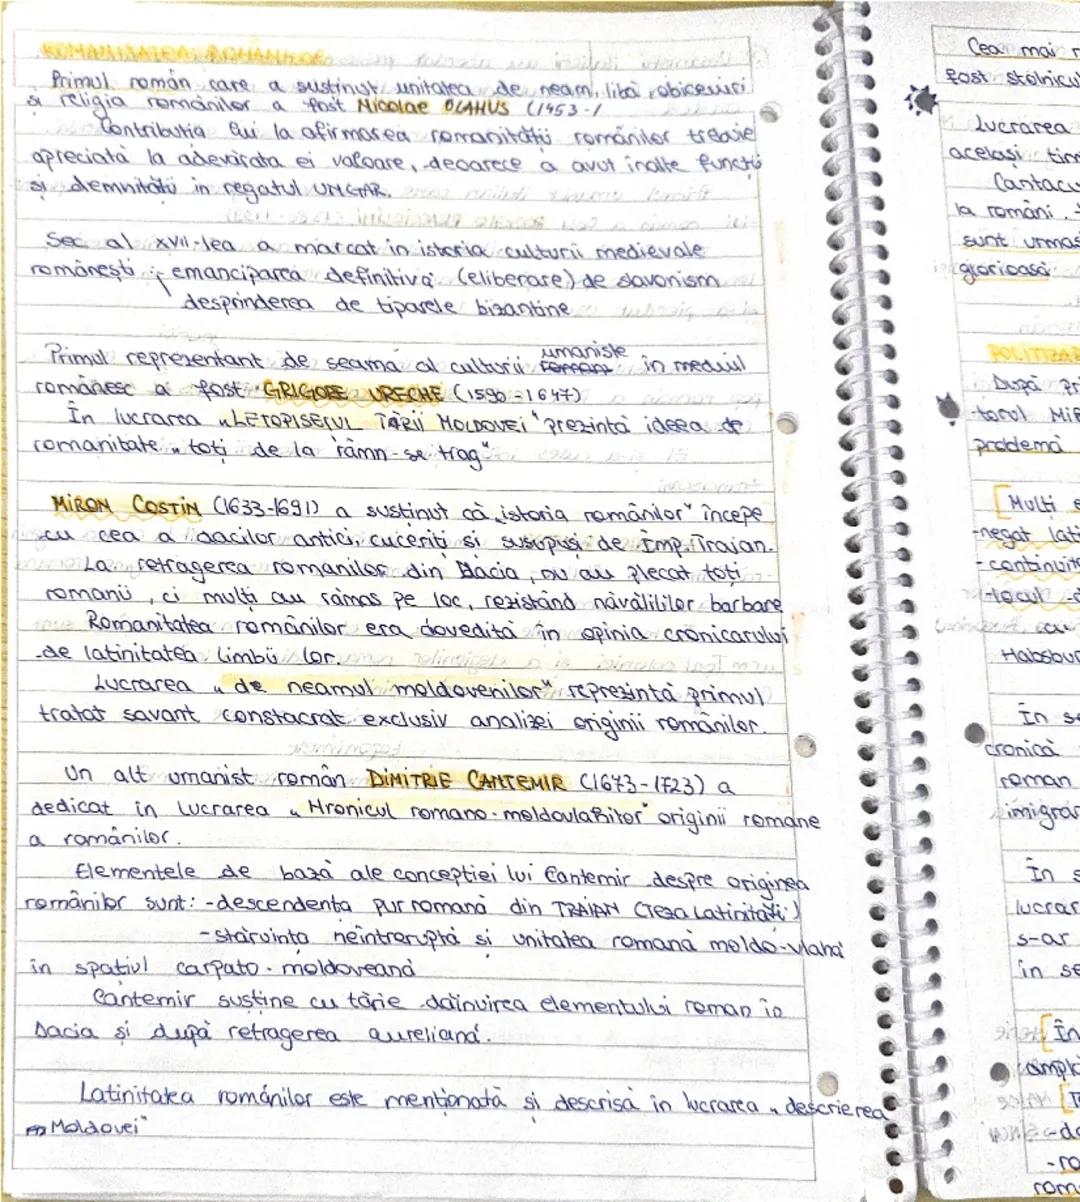 ROMANITATEA ROMÂNILOR
Primul român care a susținut unitatea de neam, libă, obiceiuri
și religia românilor a fost Nicolae OLAHUS (1453-
Contribuția lui la afirmarea romanității românilor trebuie
apreciată la adevărata ei valoare, deoarece a avut înalte funcții
și demnități în regatul UNGAR.
Sec al XVII-lea a marcat în istoria culturii medievale
românești: emanciparea definitivă (eliberare) de slavonism
desprinderea de tiparele bizantine
umaniste
Primul reprezentant de seamă al culturii în mediul
românesc a fost GRIGORE URECHE (1590-1647)
În lucrarea „LETOPISEȚUL ȚĂRII MOLDOVEI" prezintă ideea de
romanitate „toți de la râmn-se trag"
MIRON COSTIN (1633-1691) a susținut că „istoria românilor" începe
cu cea a dacilor antici, cuceriți și susupuși de Imp. Traian.
La retragerea romanilor din Dacia, nu au plecat toți
romanii, ci mulți au rămas pe loc, rezistând năvălililor barbare
Romanitatea românilor era dovedită în opinia cronicarului
de latinitatea limbii lor.
Lucrarea „de neamul moldovenilor" reprezintă primul
tratat savant constacrat exclusiv analizei originii românilor.
Un alt umanist român DIMITRIE CANTEMIR (1673-1723) a
dedicat în lucrarea „Hronicul romano-moldovlahilor" originii romane
a românilor.
Elementele de bază ale concepției lui Cantemir despre originea
românilor sunt: -descendența pur romană din TRAIAN (Teza Latinității)
-stăruința neîntreruptă și unitatea romană moldo-vlahă
în spațiul carpato-moldoveană
Cantemir susține cu tărie dăinuirea elementului roman în
Dacia și după retragerea aureliană.
Latinitatea românilor este menționată și descrisă în lucrarea „descrierea
Moldovei"
Cea mai
fost stolnicul
Lucrarea
același tim
Cantacu
la români,
sunt urmaș
glorioasă
POLITIZAR
După
torul
problema
[Mulți
-negat lati
-continuit
-locul
Habsbur
În
cronică
roman
imigrar
În
lucrar
s-ar
în se
[În
ro
rom